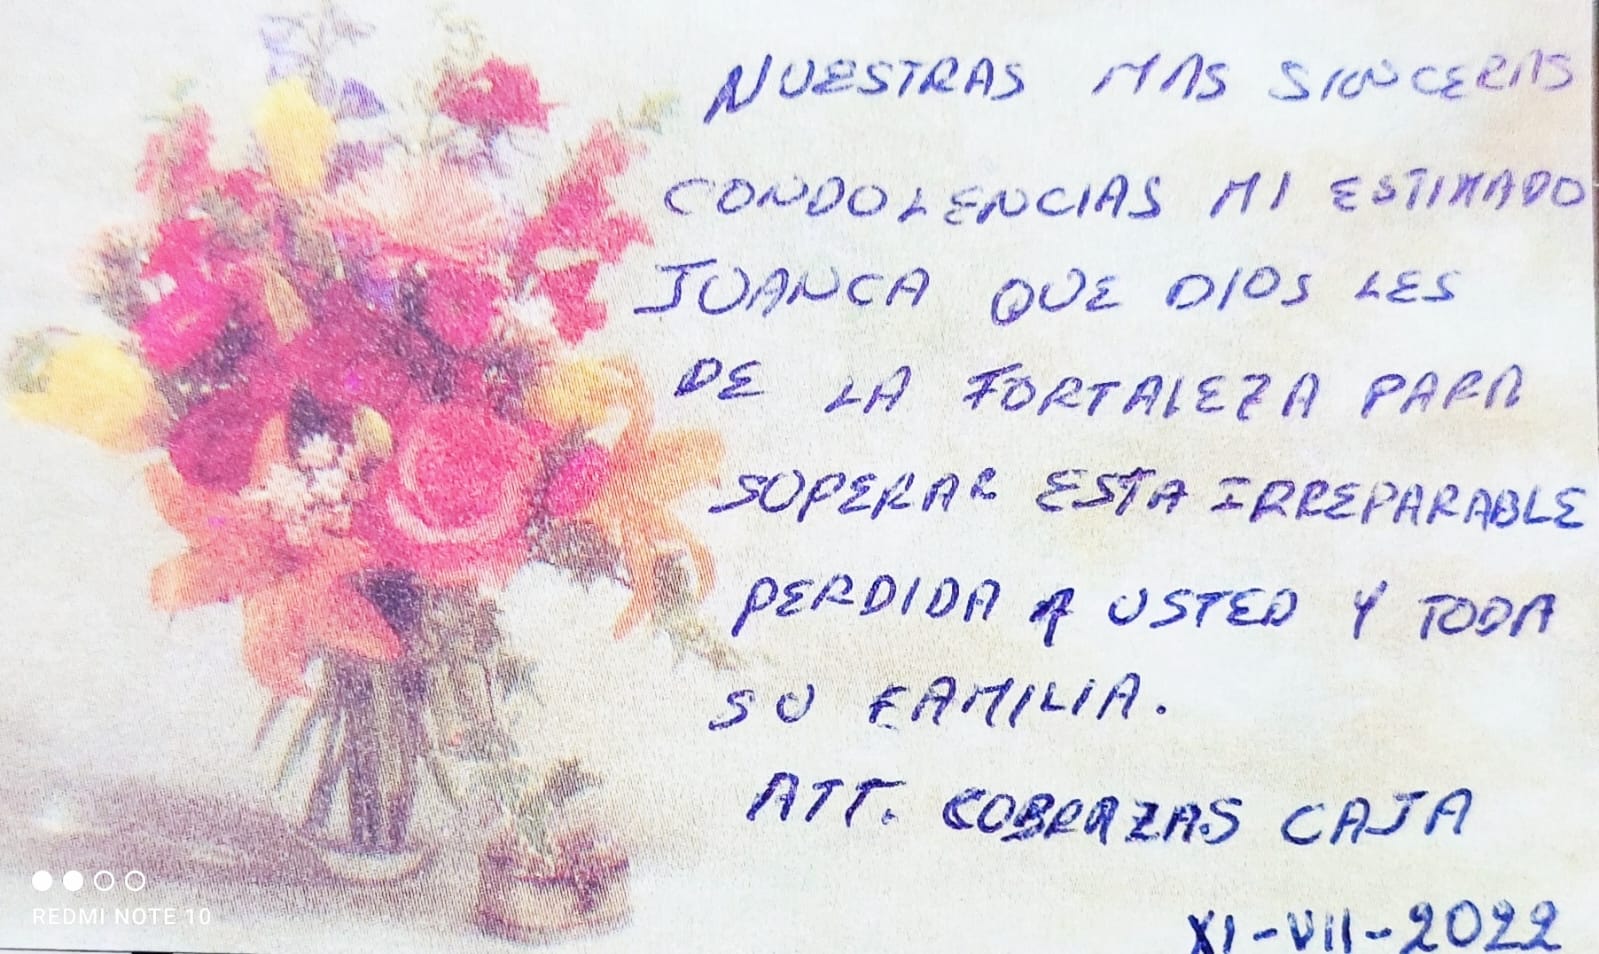 NUESTRAS MAS SINCERAS
CONDOLENCIAS MI ESTIMADO
JUANCA QUE DIOS LES
DE LA FORTALEZA PARA
SUPERAR ESTA IRREPARABLE
PERDIDA A USTED Y TODA
SU FAMILIA.
ATT. COBRAZAS CAJA
XI-VII-2022
REDMI NOTE 10